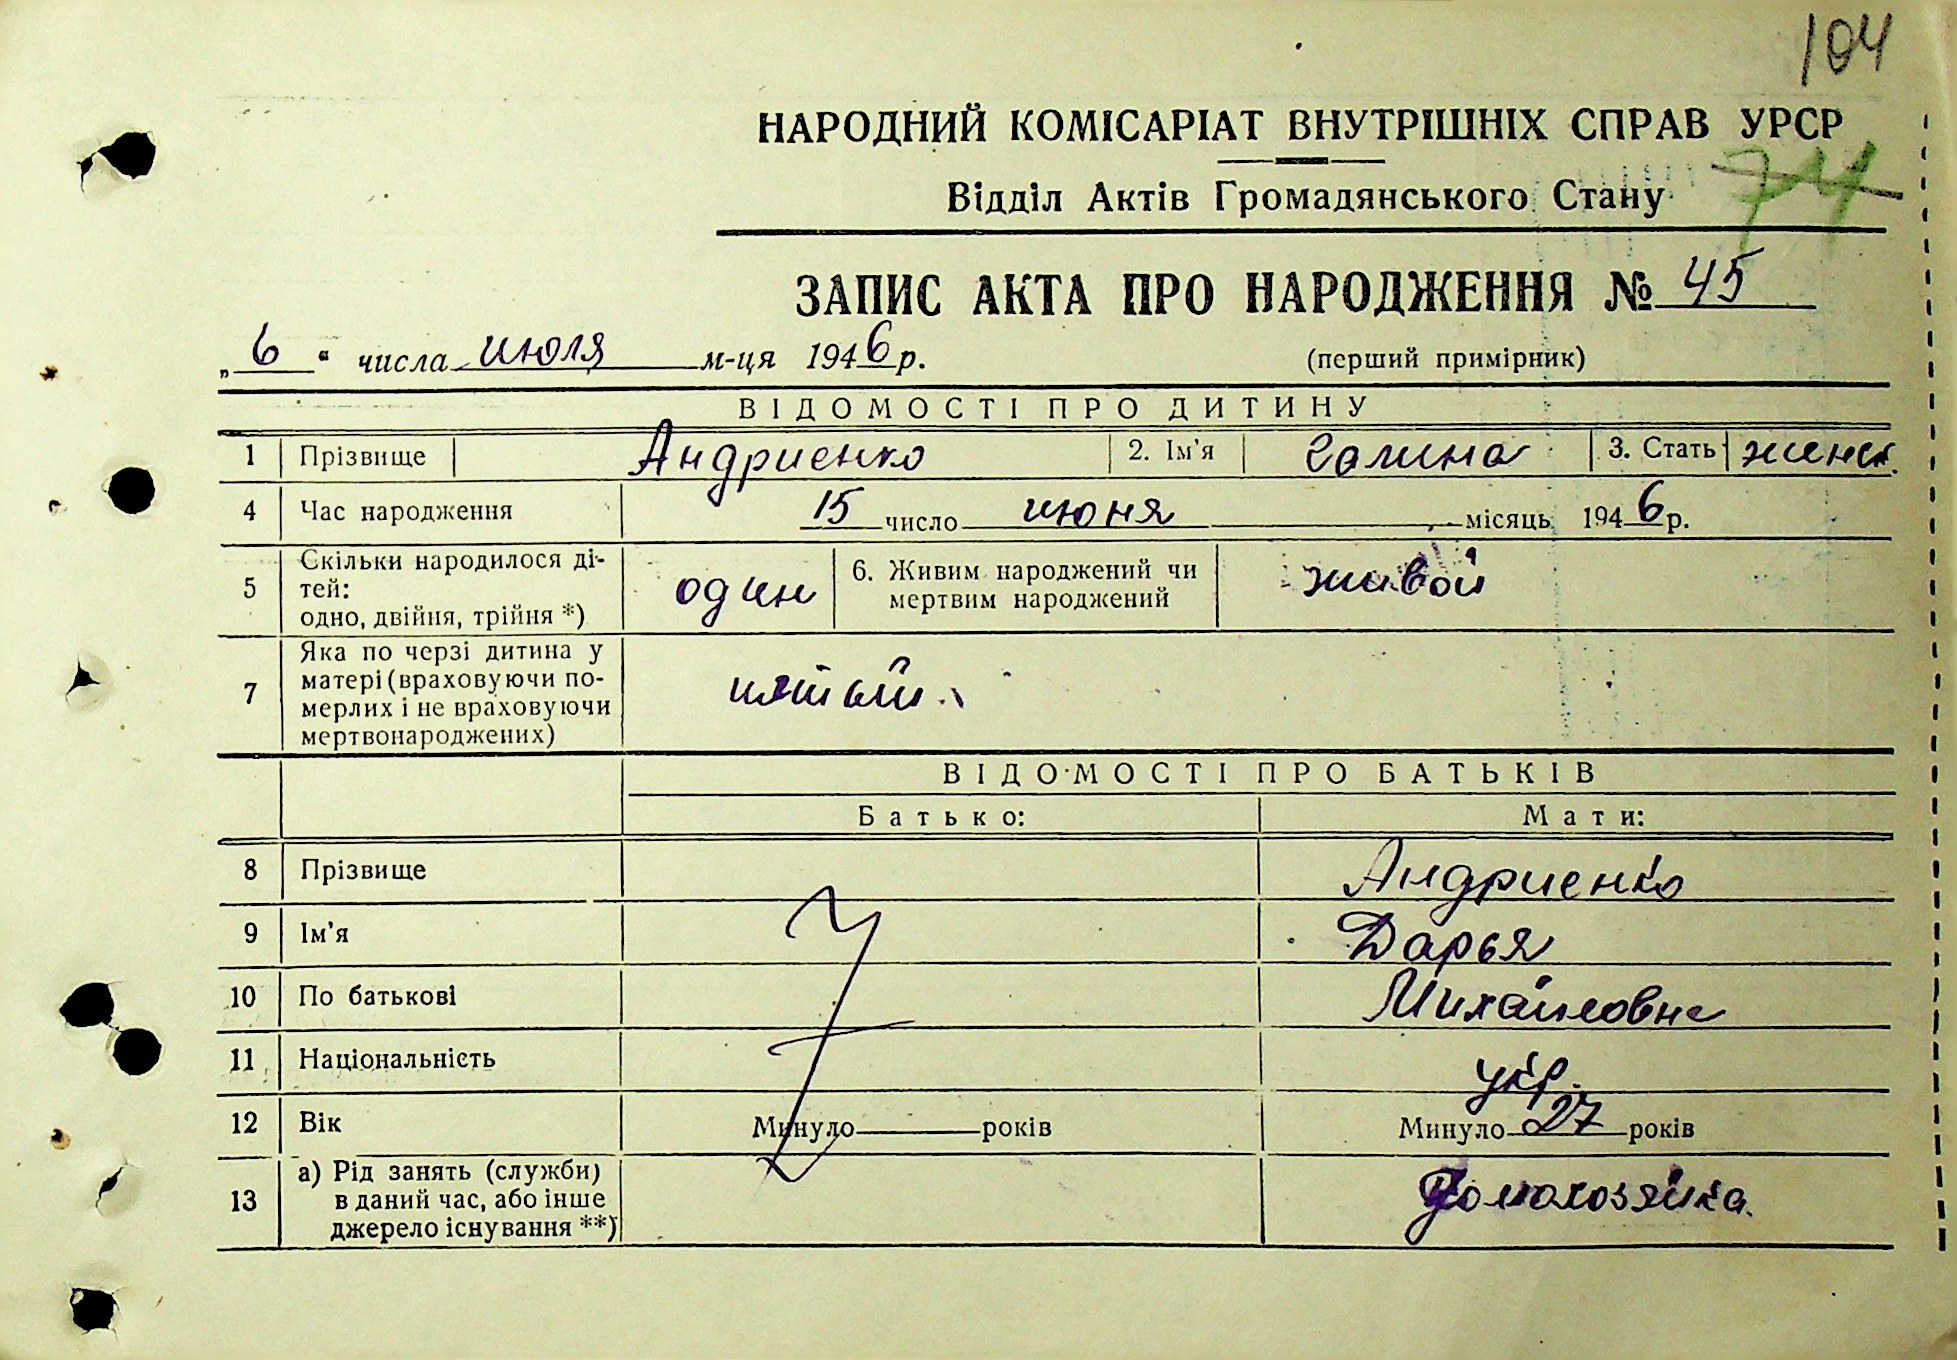 104
НАРОДНИЙ КОМІСАРІАТ ВНУТРІШНІХ СПРАВ УРСР
74
Відділ Актів Громадянського Стану
ЗАПИС АКТА ПРО НАРОДЖЕННЯ № 45
„ 6 “ числа июля м-ця 1946 р. (перший примірник)
ВІДОМОСТІ ПРО ДИТИНУ
1 Прізвище Андриенко 2. Ім'я Галина 3. Стать женск.
4 Час народження 15 число июня місяць 1946 р.
5 Скільки народилося ді-
тей:
одно, двійня, трійня *) один 6. Живим народжений чи
мертвим народжений живой
7 Яка по черзі дитина у
матері (враховуючи по-
мерлих і не враховуючи
мертвонароджених) пятый
ВІДОМОСТІ ПРО БАТЬКІВ
Батько: Мати:
8 Прізвище Андриенко
9 Ім'я Дарья
10 По батькові Михайловна
11 Національність укр.
12 Вік Минуло років Минуло 27 років
13 а) Рід занять (служби)
в даний час, або інше
джерело існування **) Домохозяйка.